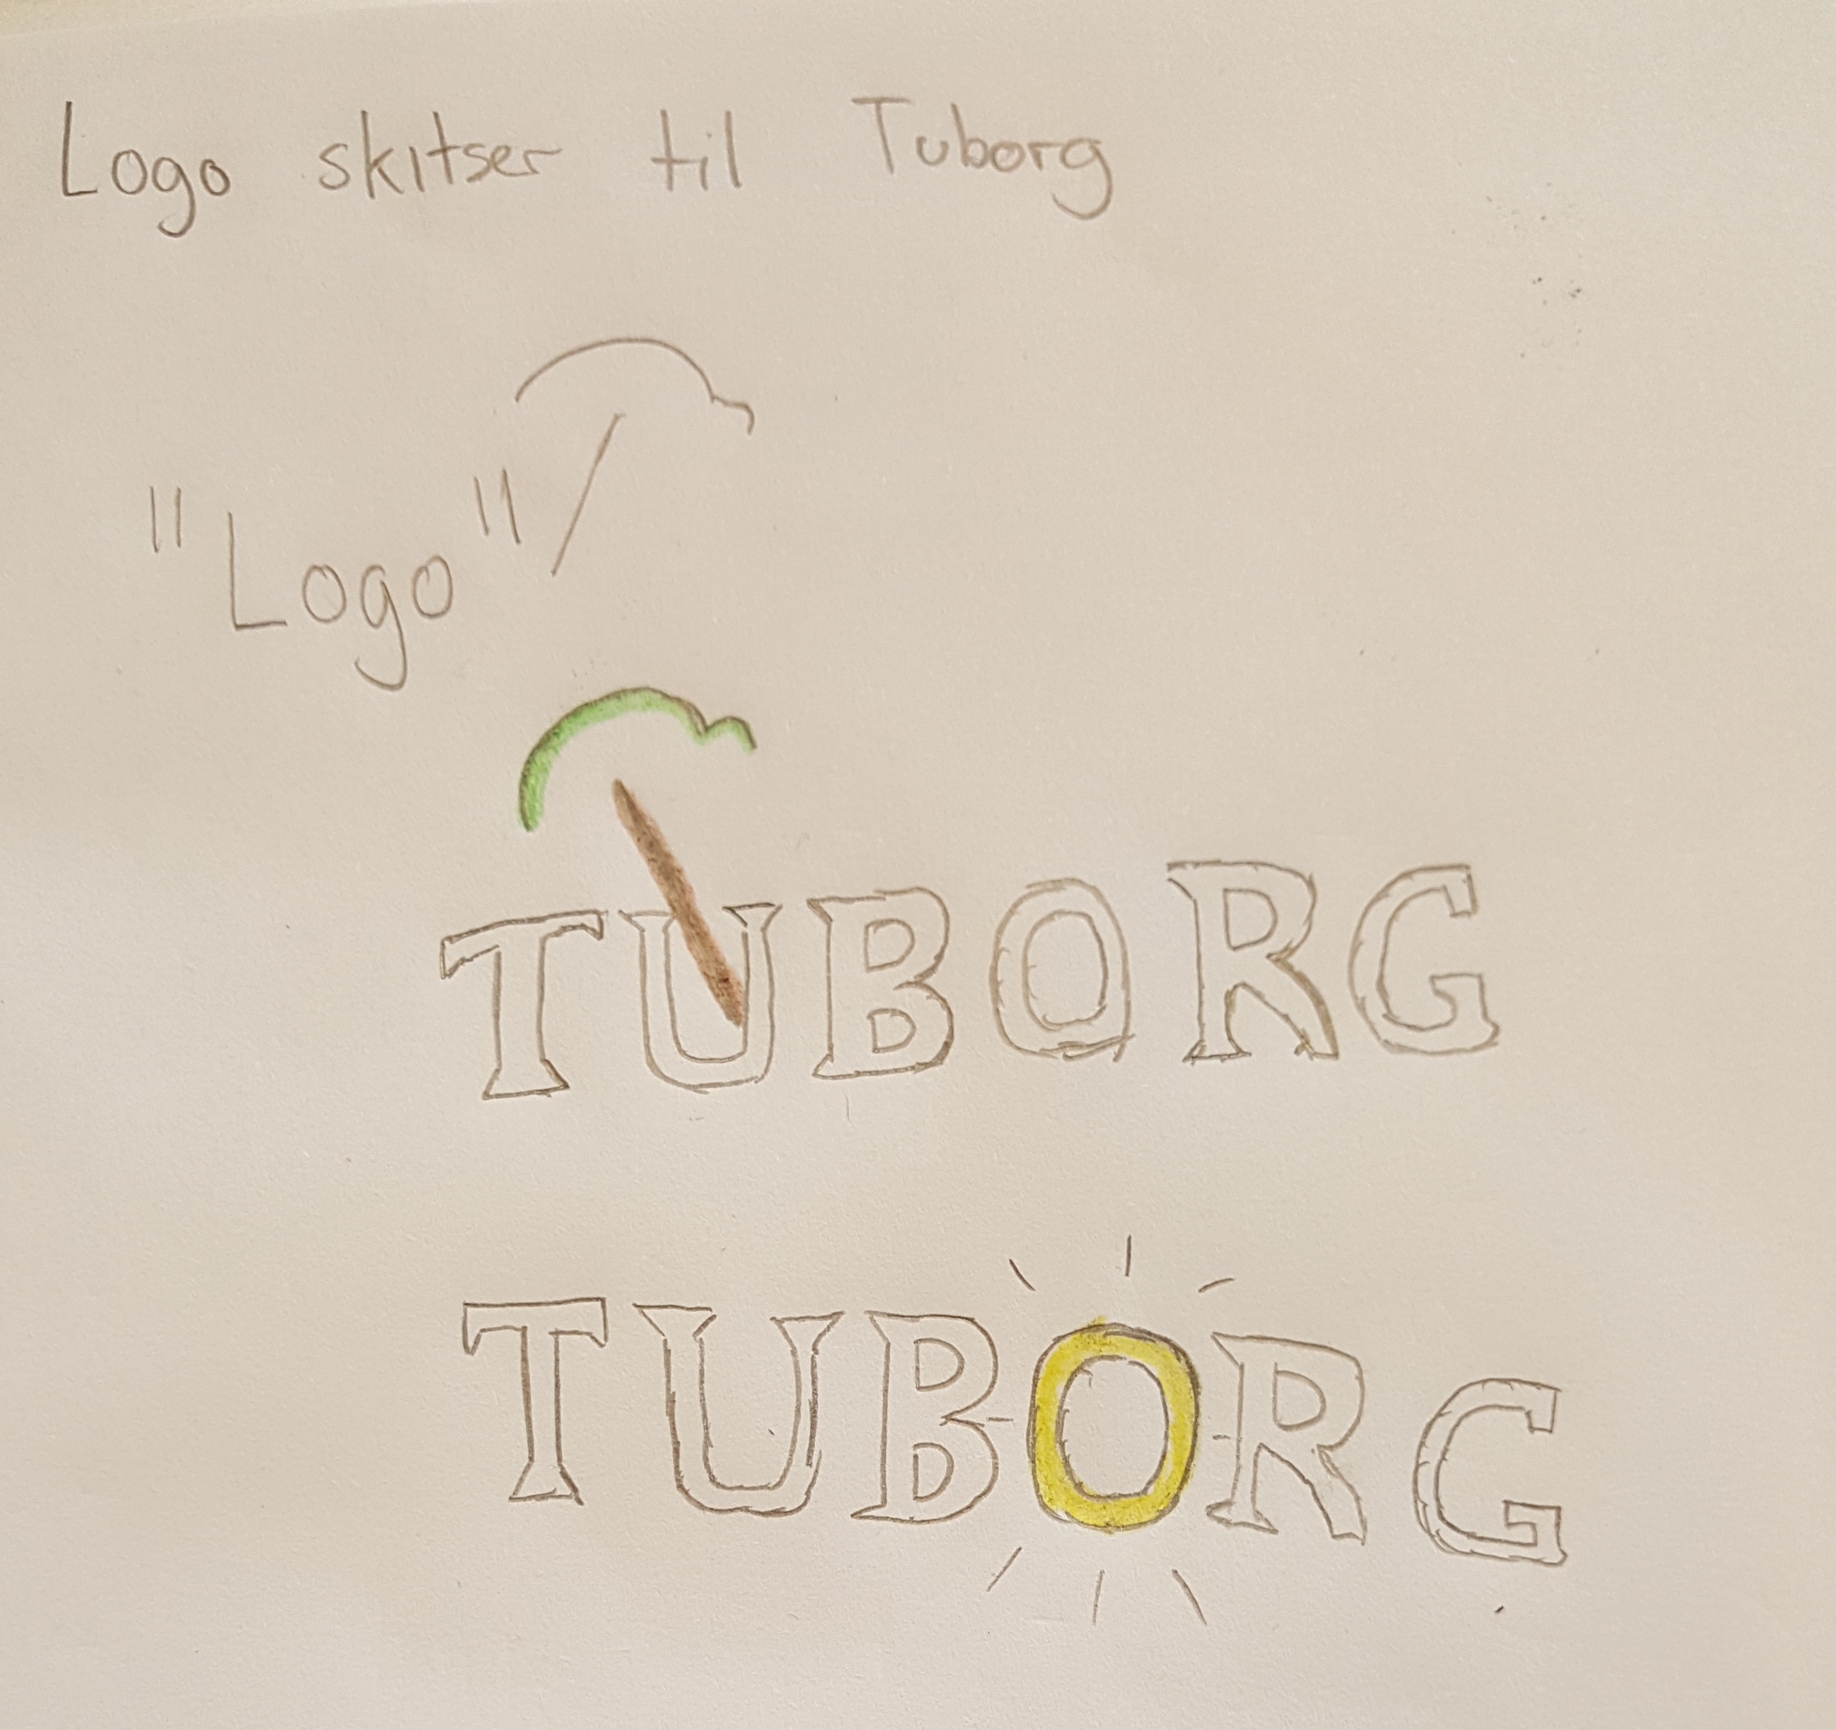 Logo skitser til Tuborg
"Logo"
TUBORG
TUBORG